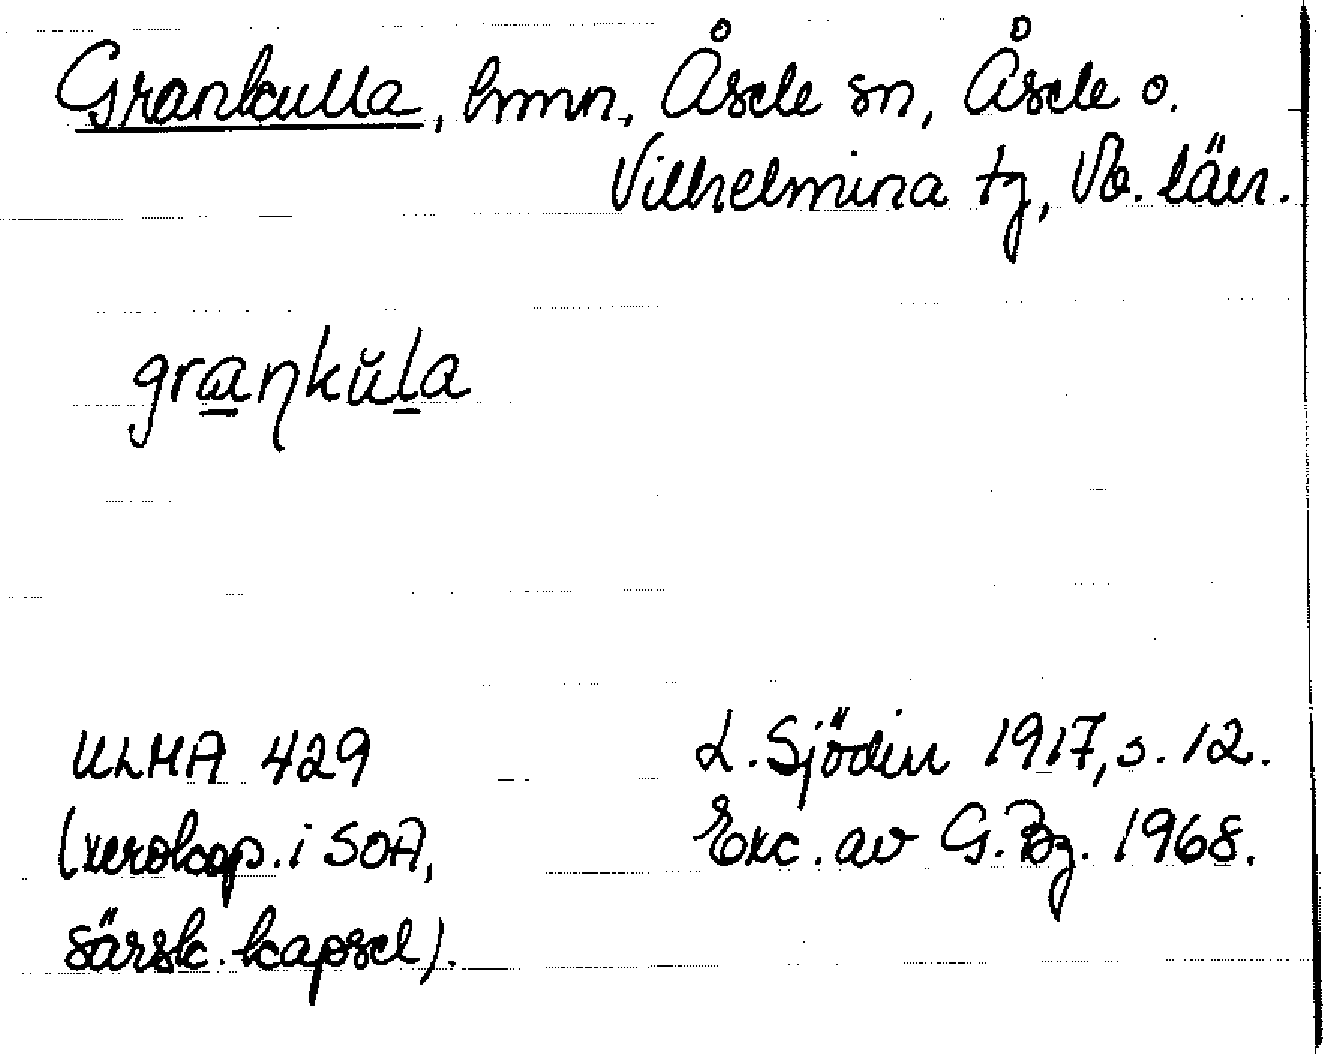 Grankulla, hmn, Åsele sn, Åsele o.
Vilhelmina tg, Vb. län.
gra̲ŋkŭl̲a
ULMA 429
(xerokop. i SOA,
särsk. kapsel).
L. Sjödin 1917, s. 12.
Exc. av G. Bg. 1968.